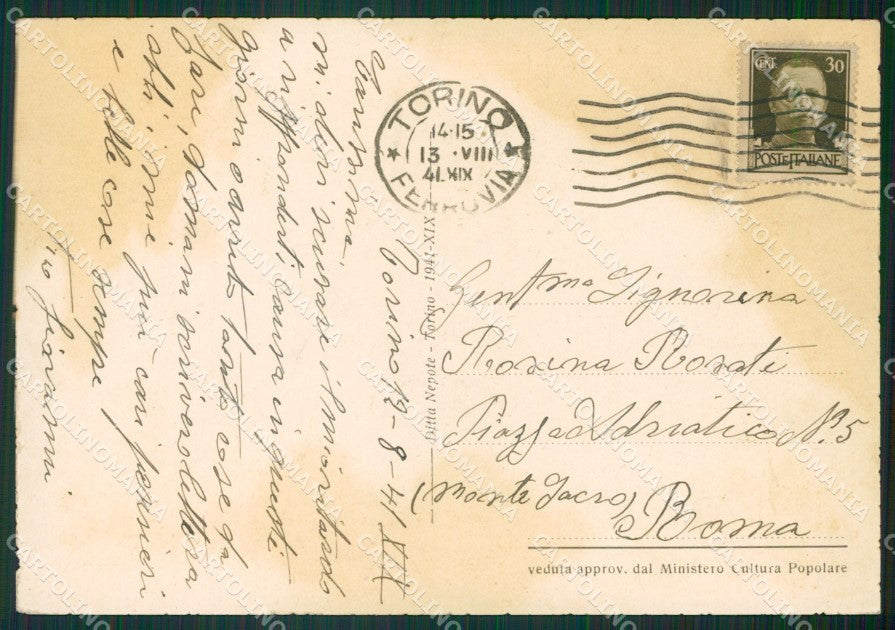 Torino 12-8-41 XIX
Carissima,
mi devi scusare il mio ritardo
a risponderti causa in questi
giorni o avuto tante cose da
fare, domani scriverò lettera
abbi i miei più cari pensieri
e belle cose sempre
Tuo
CENT. 30
POSTE ITALIANE
TORINO
14·15
13 ·VIII
41.XIX
FERROVIA
Gent.ma Signorina
Rosina Rosati
Piazza Adriatico N.° 5
(Monte Sacro)
Roma
veduta approv. dal Ministero Cultura Popolare
Ditta Nepote - Torino - 1941-XIX
CARTOLINOMANIA